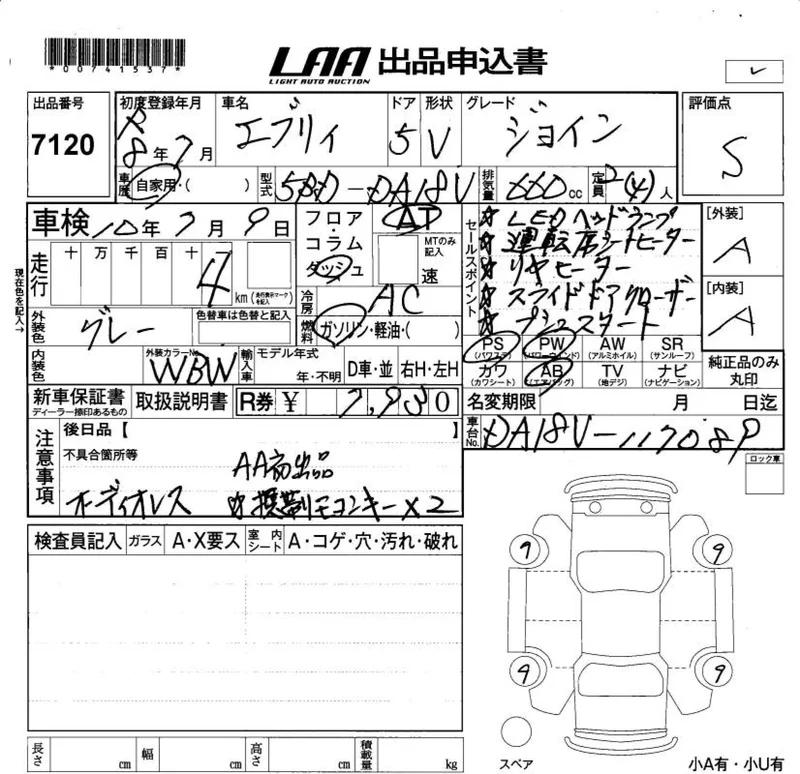 *00741537*
LAA 出品申込書
LIGHT AUTO AUCTION
出品番号 7120
初度登録年月 R8年7月
車名 エブリィ
ドア 5
形状 V
グレード ジョイン
評価点 S
車歴 自家用・( )
型式 5BD-DA18V
排気量 660cc
定員 2(4)人
車検 10年7月9日
フロア・コラム・ダッシュ
AT
MTのみ記入 速
セールスポイント
☆LEDヘッドランプ
☆運転席シートヒーター
☆リヤヒーター
☆スライドドアクローザー
☆プッシュスタート
[外装] A
[内装] A
現在色を記入→
走行 十 万 千 百 十 4 km (走行表示マークを記入)
冷房 AC
燃料 ガソリン・軽油・( )
外装色 グレー
色替車は色替と記入
内装色
外装カラーNo. WBW
輸入車 モデル年式 年・不明
D車・並 右H・左H
PS (パワステ) PW (パワーウインド) AW (アルミホイル) SR (サンルーフ)
カワ (カワシート) AB (エアバッグ) TV (地デジ) ナビ (ナビゲーション)
純正品のみ丸印
新車保証書 ディーラー捺印あるもの
取扱説明書
R券 ¥ 7,930
名変期限 月 日迄
車台No. DA18V-117089
注意事項
後日品【 】
不具合箇所等
AA初出品
オーディオレス ☆携帯リモコンキー×2
ロック車
検査員記入 ガラス A・X要ス 室内シート A・コゲ・穴・汚れ・破れ
9 9
9 9
スペア
小A有・小U有
長さ cm 幅 cm 高さ cm 積載量 kg